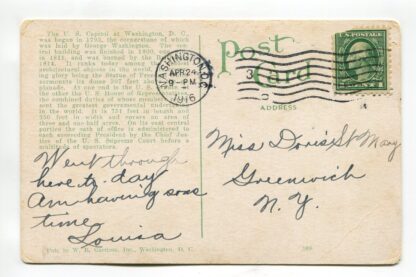 The U. S. Capitol at Washington, D. C.,
was begun in 1793, the cornerstone of which
was laid by George Washington. The
building was finished in 1800,
in 1812, and was burned by the
1814. It ranks today among the
architectural objects in the world,
ing glory being the Statue of Freedom
surmounts its dome 307 feet above the
esplanade. At one end is the U. S. Senate
the other the U. S. House of Representatives
the combined duties of whose members
sent the greatest government under
in the world. It is 751 feet in length and
350 feet in width and covers an area of
three and one-half acres. On its east central
portico the oath of office is administered to
each succeeding President by the Chief Jus-
tice of the U. S. Supreme Court before a
multitude of spectators.
Post Card
ADDRESS
WASHINGTON, D.C.
APR 24
9 - PM
1916
3
Miss Doris St May
Greenwich
N. Y.
Went through
here to-day
Am having some
time
Louisa
Pub. by W. B. Garrison, Inc., Washington, D. C.